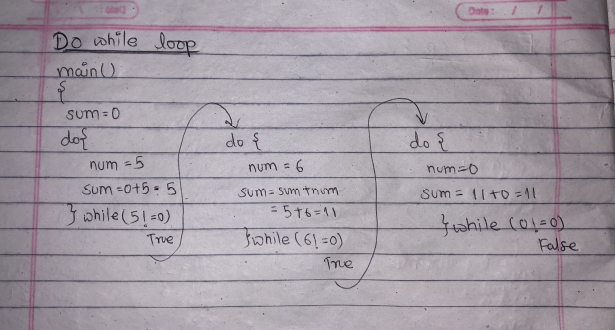 Date: / /
Do while loop
main()
{
sum=0
do{
num = 5
sum=0+5=5
} while(5!=0)
True
do {
num = 6
sum=sum+num
=5+6=11
}while(6!=0)
True
do {
num=0
sum= 11+0=11
}while (0!=0)
False